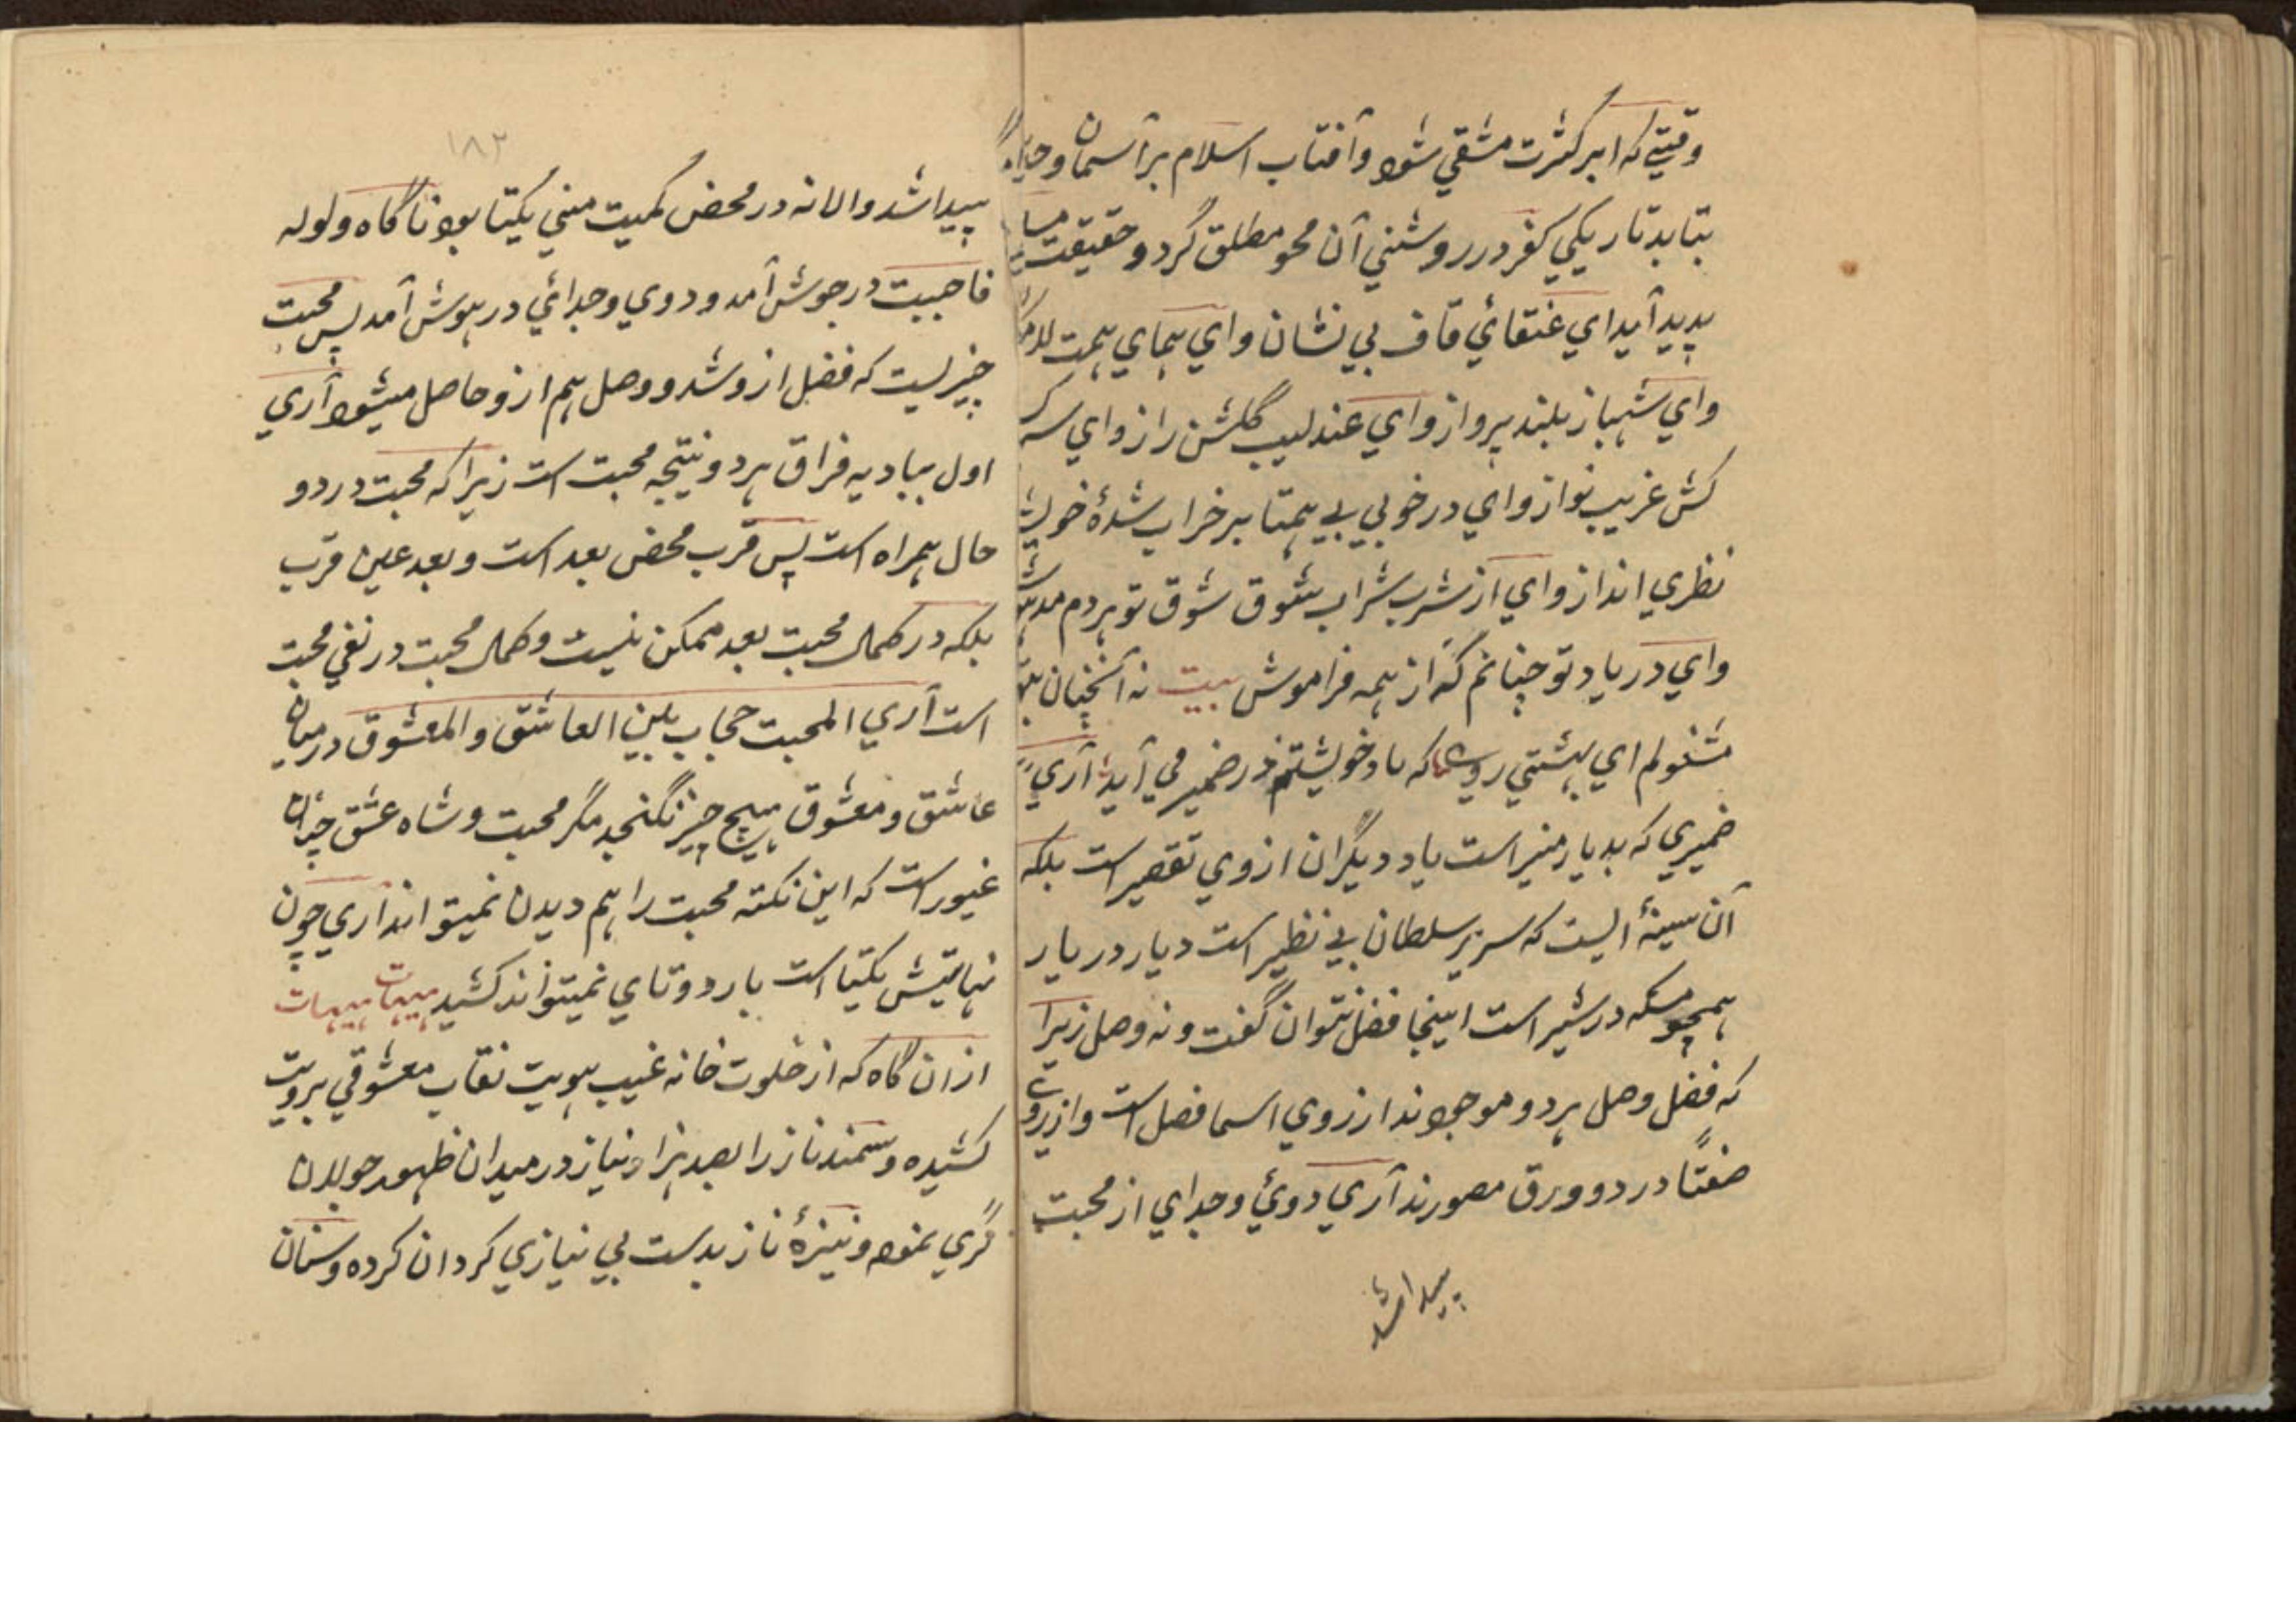 وقتیکه ابر کثرت مشقي شود وآفتاب اسلام بر آسمان
بتابد تاریکي کفر در روشنني آن محو مطلق گردد حقیقت
پدید آید اي عنقائي قاف بي نشان واي همای همت
واي شهباز بلند پرواز واي عندلیب گلشن راز واي
کش غریب نواز واي در خوبي بي همتا بر خراب شدۀ خویش
نظري انداز واي از شرب شراب شوق تو هردم
واي در یاد تو چنانم که از همه فراموش بیت نه آنچنان بتو
مشغولم اي بهشتي روي که یاد خویشتنم در ضمیر مي آید آري
ضمیري که بدیار منیر است یاد دیگران از وي تقصیر است بلکه
آن سینۀ ایست که سریر سلطان بي نظیر است دیار در یار
همچو مسکه در شیر است اینجا فضل نتوان گفت ونه وصل زیرا
که فضل وصل هر دو موجودند از روي اسما فصل است واز روي
صفتًا در دو ورق مصورند آري دوئي وجداي از محبت
پیدا شد
۱۸۲
پیدا شد والا نه در محض کمیت مني یکتا بود ناگاه ولوله
فاحببت در جوش آمد ودوي وجدائي در هوش آمد پس محبت
چیزیست که فضل ازو شد ووصل هم ازو حاصل میشود آري
اول ببادیه فراق هر دو نتیجه محبت است زیرا که محبت در دو
حال همراه است پس قرب محض بعد است وبعد عین قرب
بلکه در کمال محبت بعد ممکن نیست وکمال محبت در نفي محبت
است آري المحبت حجاب بین العاشق والمعشوق در میان
عاشق ومعشوق هیچ چیز نگنجد مگر محبت وشاه عشق چنان
غیور است که این نکته محبت را هم دیدن نمیتواند آري چون
نهایتش یکتا است بار دوتاي نمیتواند کشید هیهات هیهات
ازان گاه که از خلوت خانه غیب هویت نقاب معشوقي برویت
کشیده وسمند ناز را بصد هزار نیاز در میدان ظهور جولان
گري نمود ونیزۀ ناز بدست بي نیازي کردان کرده وسنان